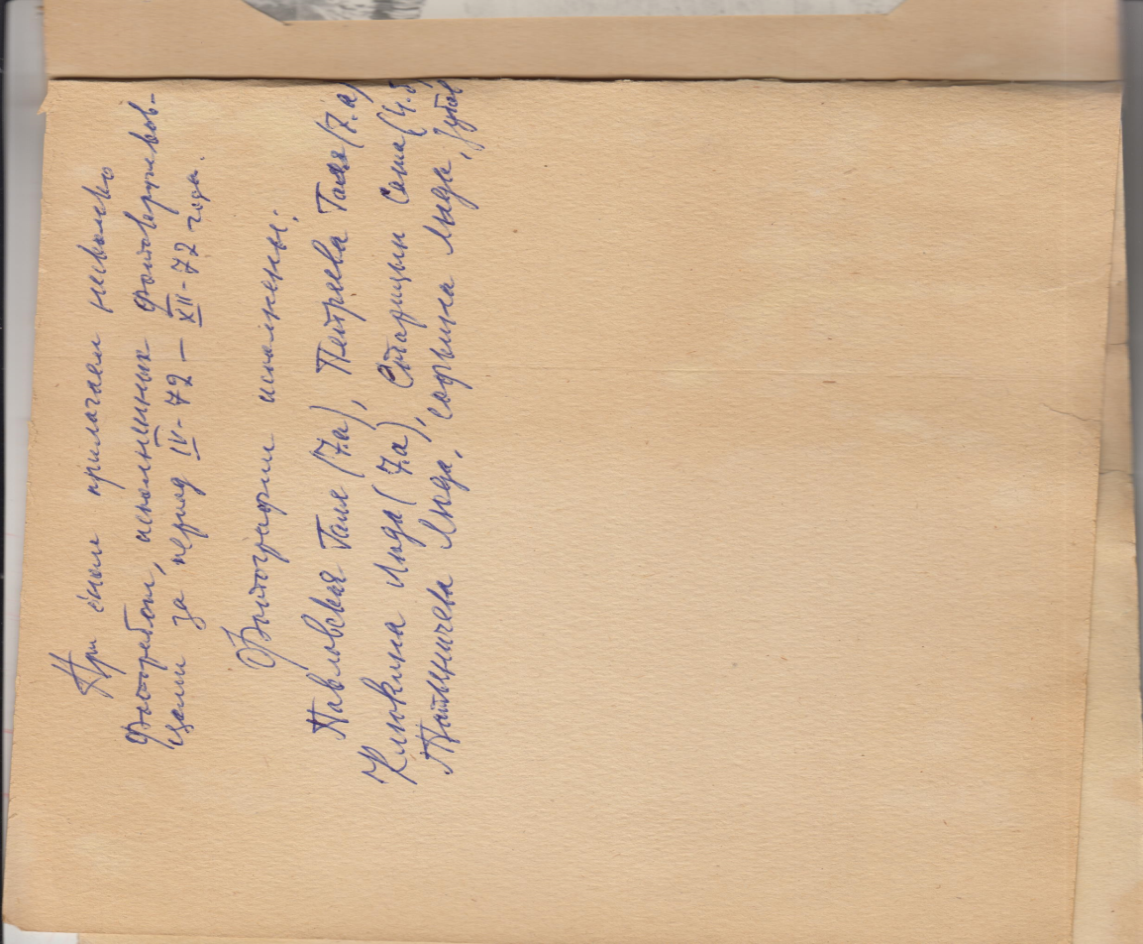 При сём прилагаем несколько
фоторабот, исполненных фотокружков-
цами за период IV-72 — XII-72 года.
Фотографии исполнены:
Павловская Галя (7.а), Петреева Галя (7.а)
Клюкина Лида (7.а), Старицын Саша (4.б
Лида, Софьина Лида,